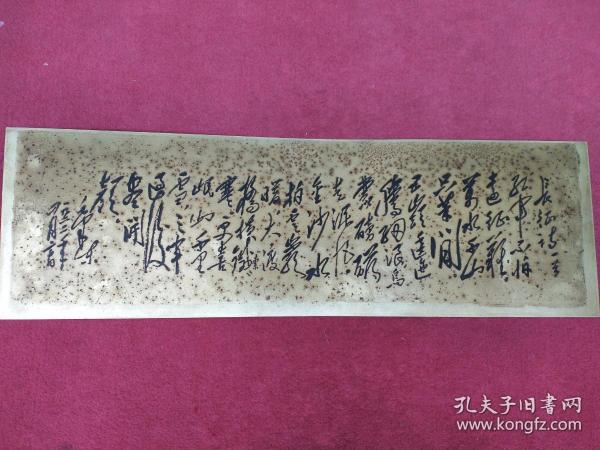 长征诗一首
红军不怕
远征难
万水千山
只等闲
五岭逶迤
腾细浪乌
蒙磅礴
走泥丸
金沙水
拍云崖
暖大渡
桥横铁
索寒更喜
岷山千里
雪三军
过后
尽开
颜
毛泽东
孔夫子旧书网
www.kongfz.com